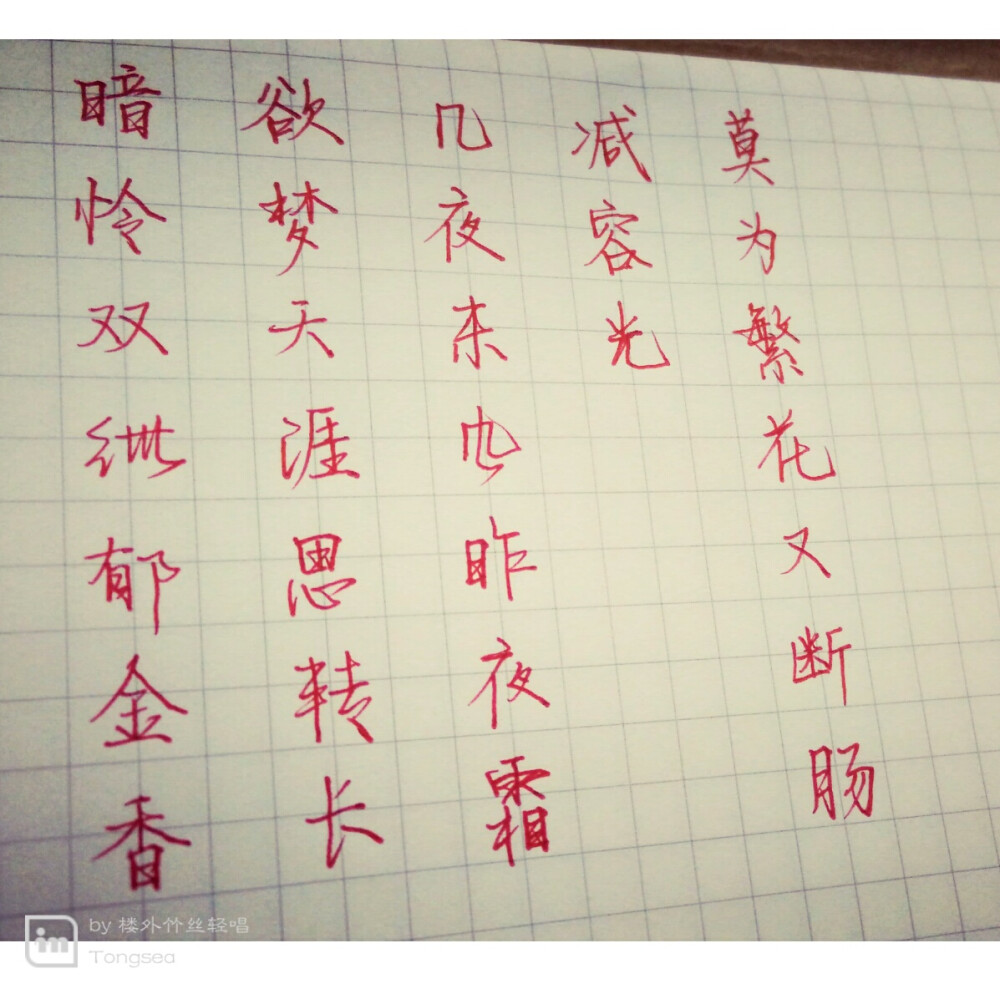 暗怜双绁郁金香
欲梦天涯思转长
几夜东风昨夜霜
减容光
莫为繁花又断肠
im
by 楼外竹丝轻唱
Tongsea